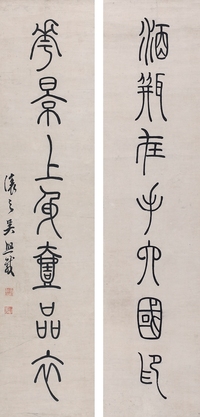 酒瓶在手六國印
華景上身壹品衣
讓之吳熙載